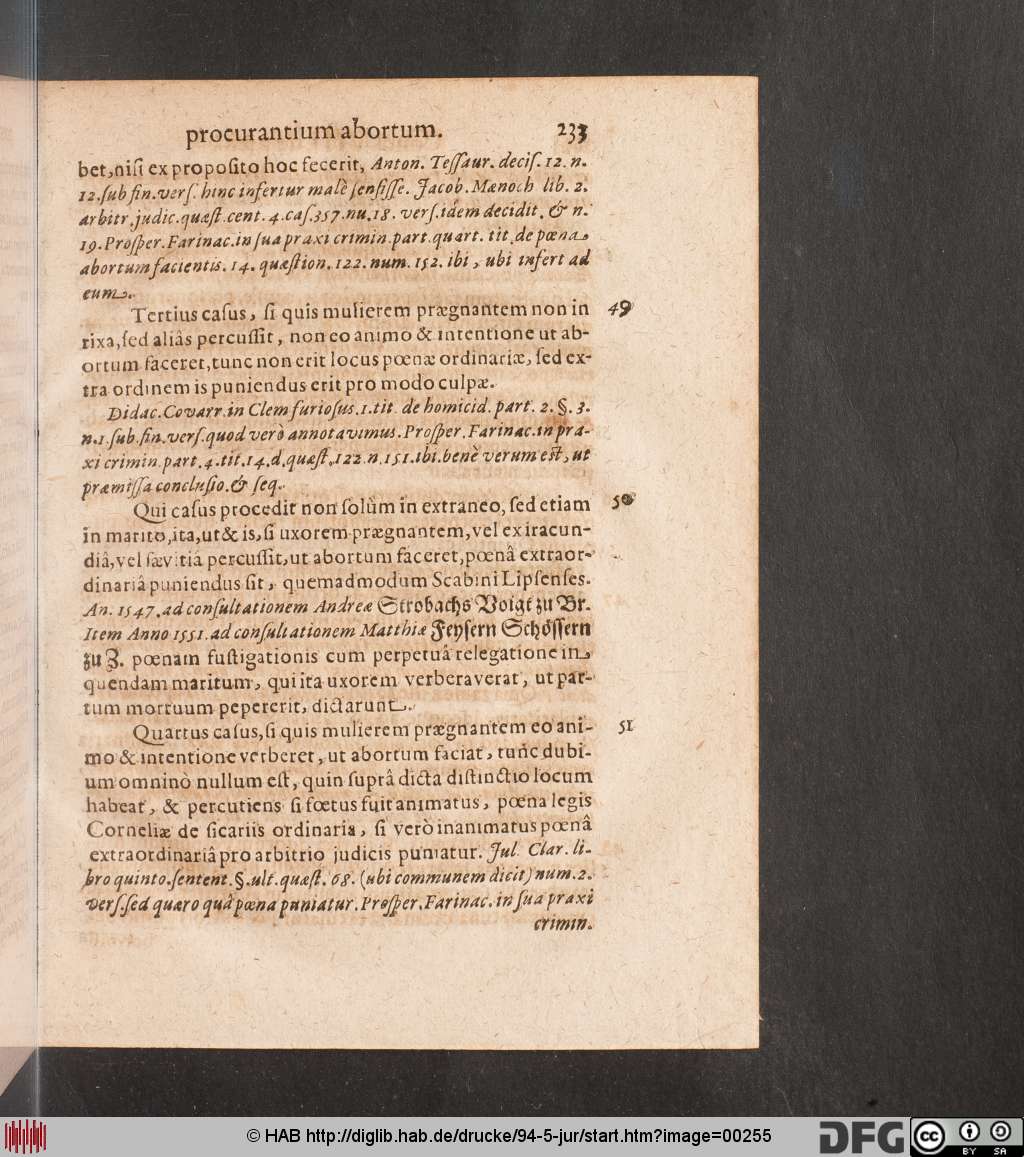 procurantium abortum. 233
bet, nisi ex proposito hoc fecerit, Anton. Tessaur. decis. 12. n.
12. sub fin. vers. hinc infertur malè sensisse. Jacob. Mænoch lib. 2.
arbitr. judic. quæst. cent. 4. cas. 357. nu. 18. vers. idem decidit. & n.
19. Prosper. Farinac. in sua praxi crimin. part. quart. tit. de pœna
abortum facientis. 14. quæstion. 122. num. 152. ibi, ubi infert ad
eum.
Tertius casus, si quis mulierem prægnantem non in 49
rixa, sed aliâs percussit, non eo animo & intentione ut ab-
ortum faceret, tunc non erit locus pœnæ ordinariæ, sed ex-
tra ordinem is puniendus erit pro modo culpæ.
Didac. Covarr. in Clem furiosus. 1. tit. de homicid. part. 2. §. 3.
n. 1. sub. fin. vers. quod verò annotavimus. Prosper. Farinac. in pra-
xi crimin. part. 4. tit. 14. d. quæst. 122. n. 151. ibi. benè verum est, ut
præmissa conclusio. & seq.
Qui casus procedit non solùm in extraneo, sed etiam 50
in marito, ita, ut & is, si uxorem prægnantem, vel ex iracun-
diâ, vel sævitiâ percussit, ut abortum faceret, pœnâ extraor-
dinariâ puniendus sit, quemadmodum Scabini Lipsenses.
An. 1547. ad consultationem Andreæ Strobachs Voigt zu Br.
Item Anno 1551. ad consultationem Matthiæ Feysern Schössern
zu Z. pœnam fustigationis cum perpetuâ relegatione in
quendam maritum, qui ita uxorem verberaverat, ut par-
tum mortuum pepererit, dictarunt.
Quartus casus, si quis mulierem prægnantem eo ani- 51
mo & intentione verberet, ut abortum faciat, tunc dubi-
um omninò nullum est, quin suprâ dicta distinctio locum
habeat, & percutiens si fœtus fuit animatus, pœna legis
Corneliæ de sicariis ordinaria, si verò inanimatus pœnâ
extraordinariâ pro arbitrio judicis puniatur. Jul. Clar. li-
bro quinto. sentent. §. ult. quæst. 68. (ubi communem dicit) num. 2.
vers. sed quæro quâ pœna puniatur. Prosper. Farinac. in sua praxi
crimin.
© HAB http://diglib.hab.de/drucke/94-5-jur/start.htm?image=00255
DFG
cc
BY SA